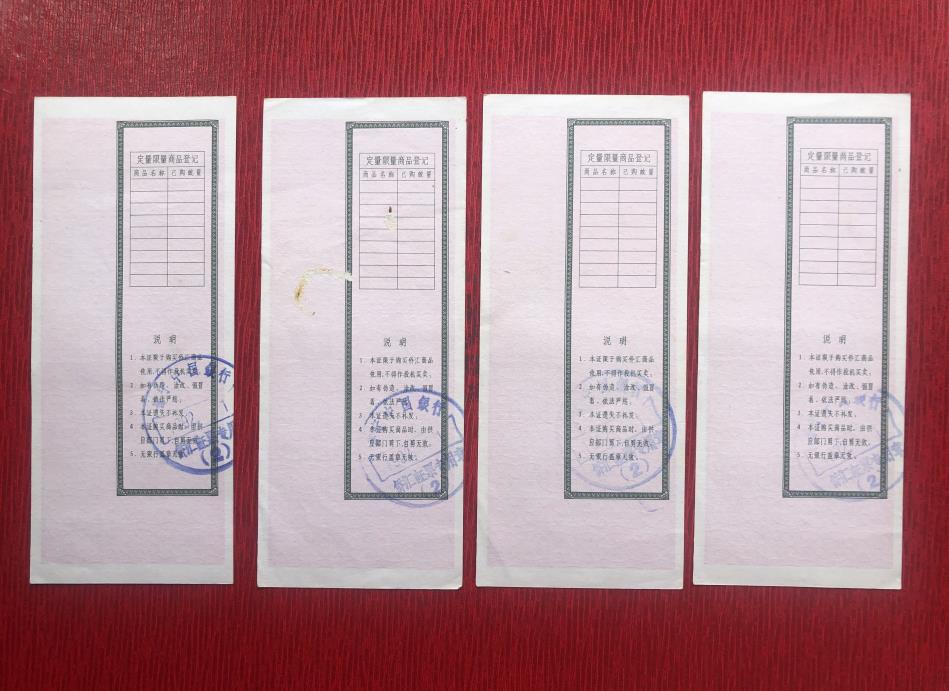 定量限量商品登记
商品名称 已购数量
说 明
1. 本证限于购买侨汇商品
使用,不得作投机买卖；
2. 如有伪造、涂改、
者，依法严惩；
3. 本证遗失不补发；
4. 本证购买商品时，由供
应部门剪下,自剪无效。
5. 无银行盖章无效。
中国银行
(2)
定量限量商品登记
商品名称 已购数量
说 明
1. 本证限于购买侨汇商品
使用,不得作投机买卖；
2. 如有伪造、涂改、
者，依法严惩；
3. 本证遗失不补发；
4. 本证购买商品时，由供
应部门剪下,自剪无效。
5. 无银行盖章无效。
中国银行
侨汇证票专用章
(2)
定量限量商品登记
商品名称 已购数量
说 明
1. 本证限于购买侨汇商品
使用,不得作投机买卖；
2. 如有伪造、涂改、
者，依法严惩；
3. 本证遗失不补发；
4. 本证购买商品时，由供
应部门剪下,自剪无效。
5. 无银行盖章无效。
(2)
定量限量商品登记
商品名称 已购数量
说 明
1. 本证限于购买侨汇商品
使用,不得作投机买卖；
2. 如有伪造、涂改、
者，依法严惩；
3. 本证遗失不补发；
4. 本证购买商品时，由供
应部门剪下,自剪无效。
5. 无银行盖章无效。
银行
侨汇证票专用章
(2)